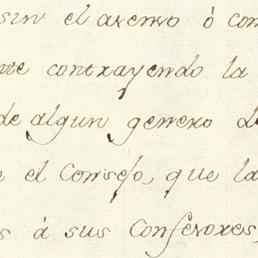 sin el axenso ó con
nte contrayendo la
de algun genero de
e el Consejo, que la
s á sus Confesores,